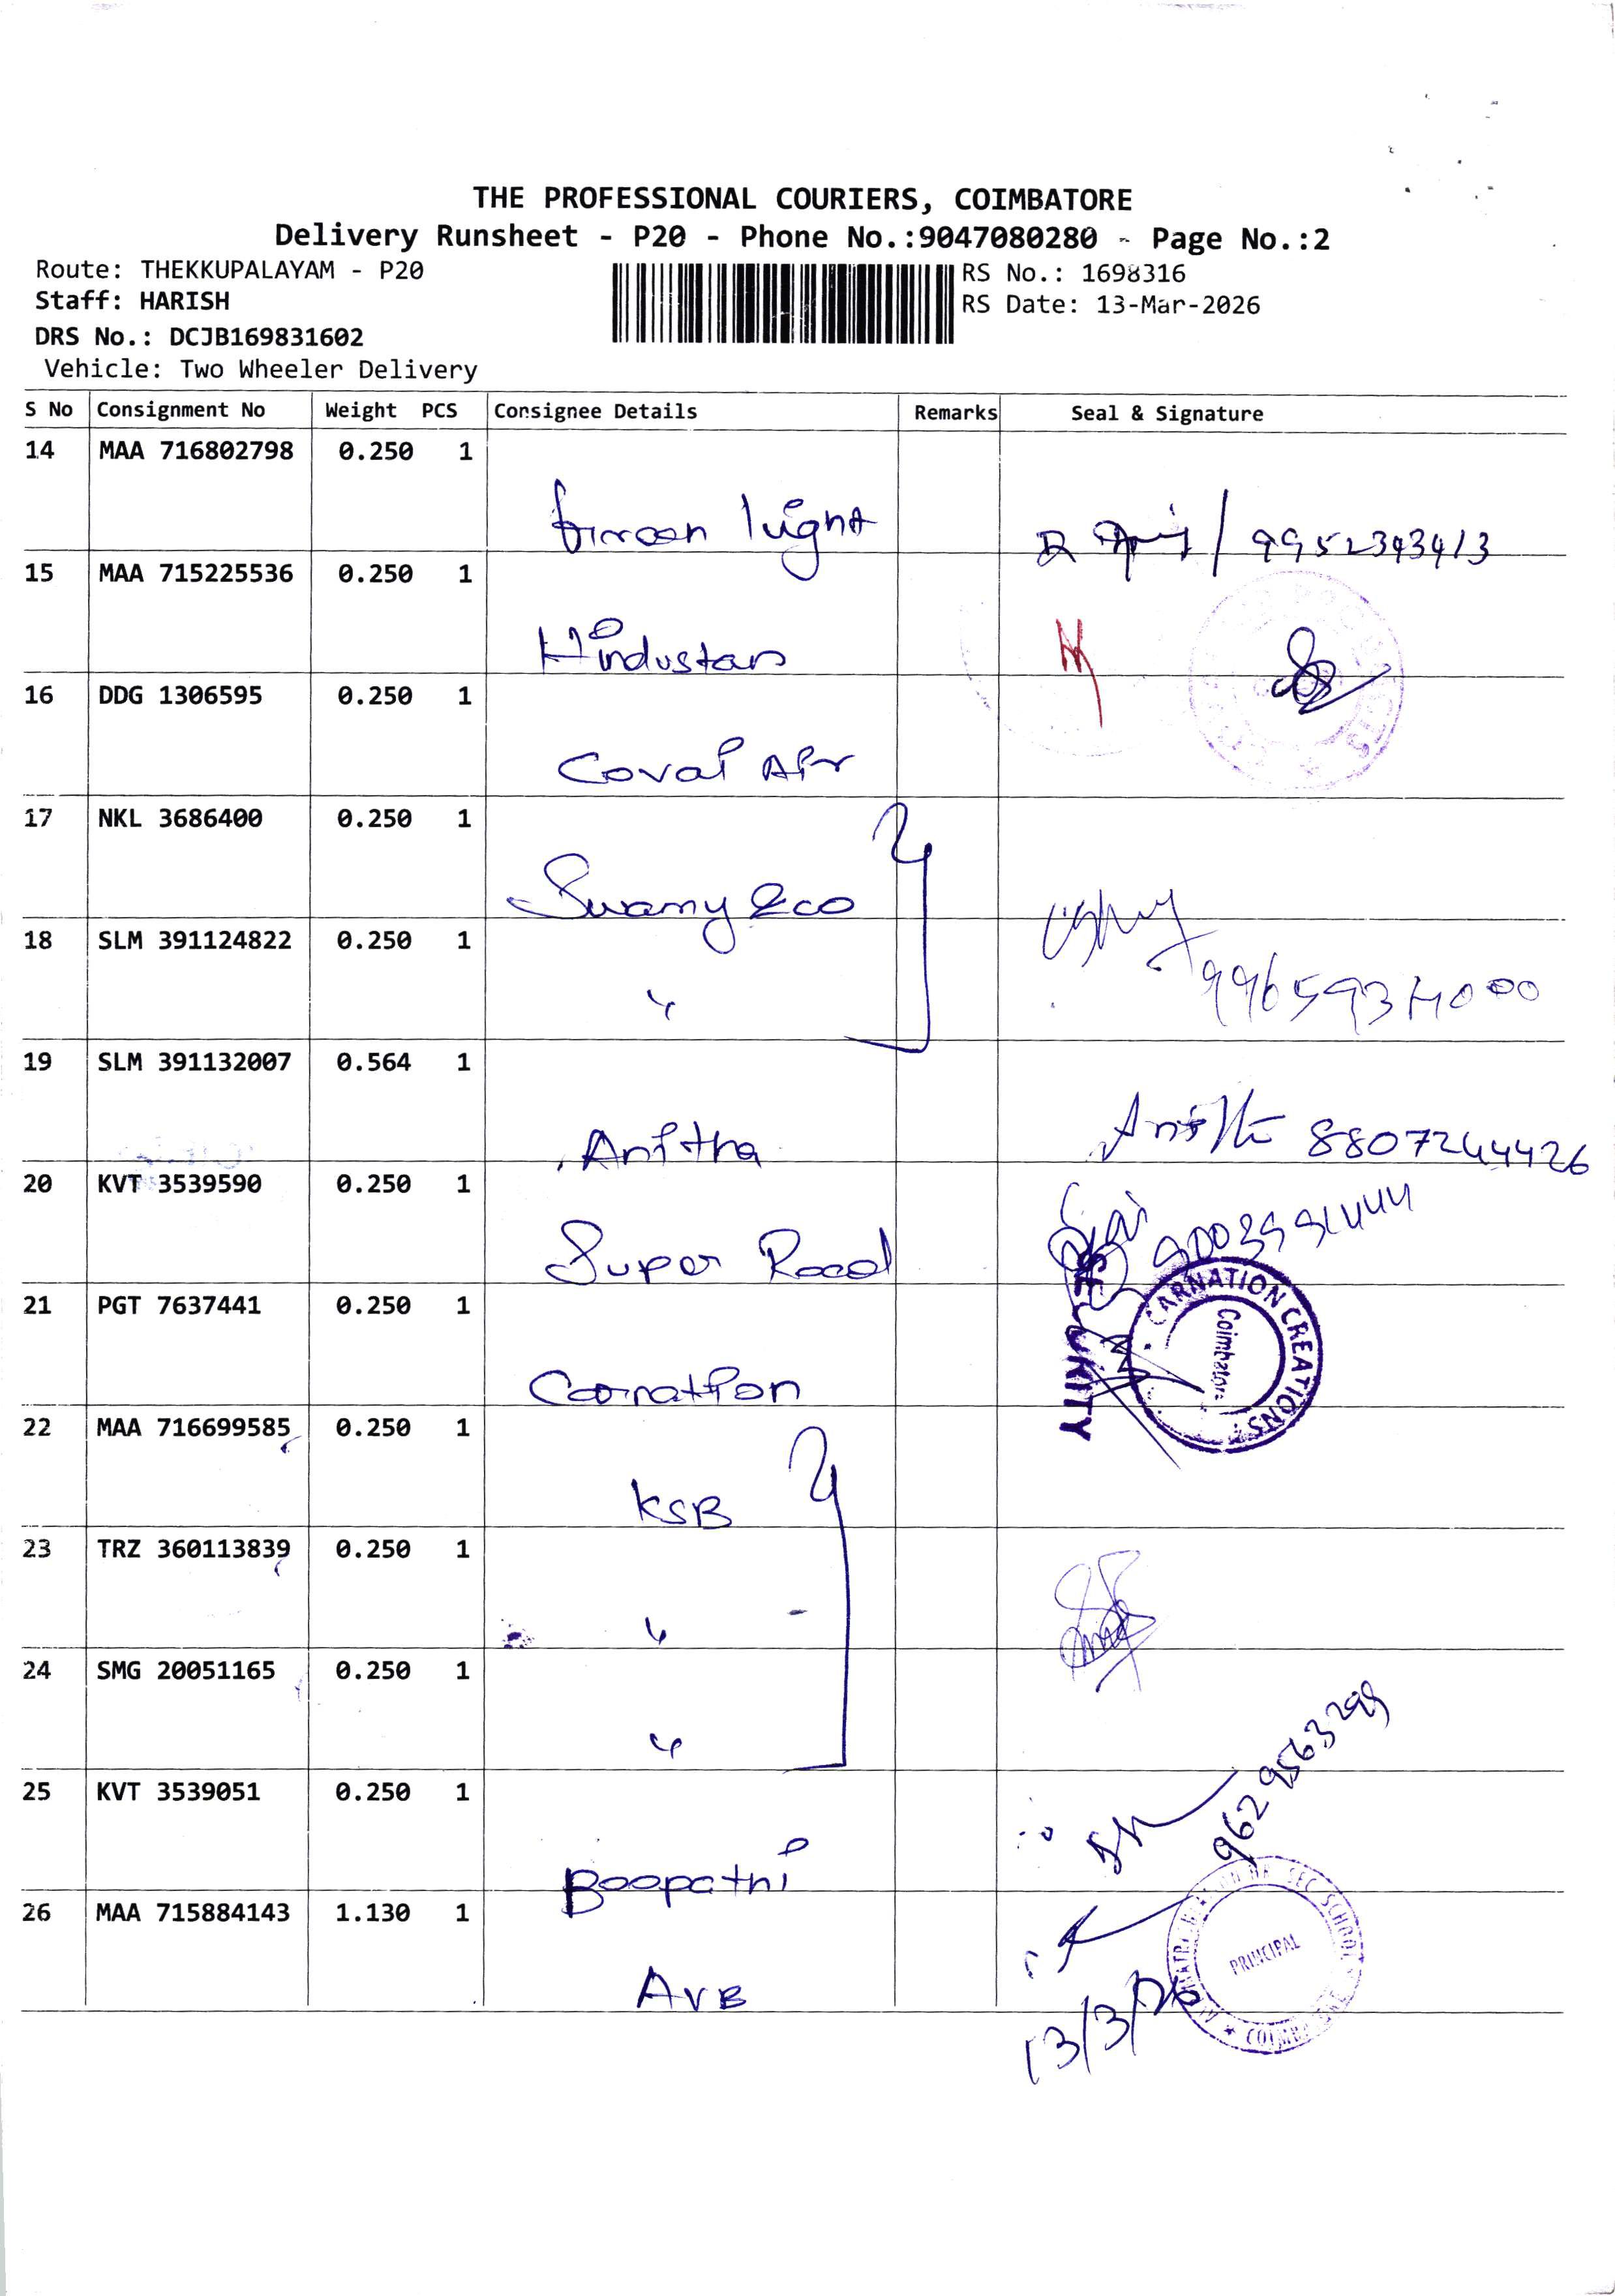 THE PROFESSIONAL COURIERS, COIMBATORE
Delivery Runsheet - P20 - Phone No.:9047080280 - Page No.:2
Route: THEKKUPALAYAM - P20
RS No.: 1698316
Staff: HARISH
RS Date: 13-Mar-2026
DRS No.: DCJB169831602
Vehicle: Two Wheeler Delivery
S No Consignment No Weight PCS Consignee Details Remarks Seal & Signature
14 MAA 716802798 0.250 1
light 9952343413
15 MAA 715225536 0.250 1
Hindustan
16 DDG 1306595 0.250 1
Covai Air
17 NKL 3686400 0.250 1
Swamy & co
18 SLM 391124822 0.250 1
"
19 SLM 391132007 0.564 1
Anitha 8807244426
20 KVT 3539590 0.250 1
Super
21 PGT 7637441 0.250 1
CARNATION CREATIONS
Coimbatore
SECURITY
Carnation
22 MAA 716699585 0.250 1
KSB
23 TRZ 360113839 0.250 1
"
24 SMG 20051165 0.250 1
"
9629563299
25 KVT 3539051 0.250 1
Boopathi
26 MAA 715884143 1.130 1
SEC SCHOOL
PRINCIPAL
AVB
13/3/26